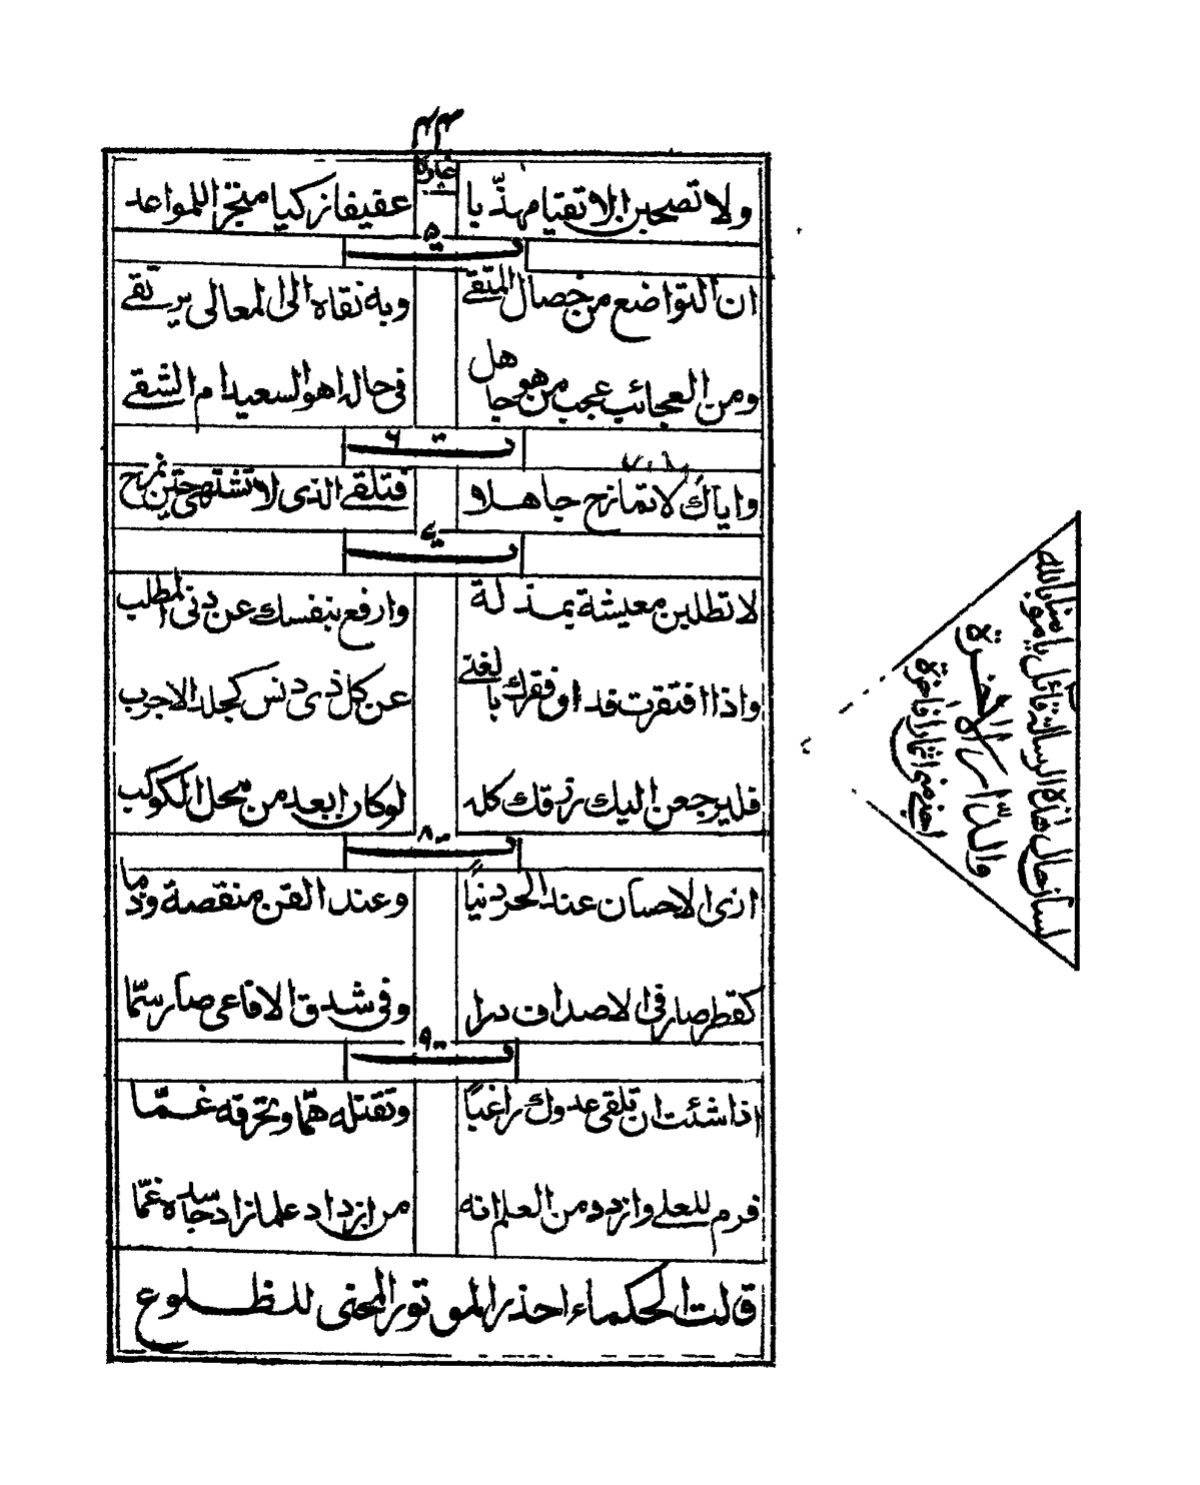 ٤٣
ولا تصحبن الا تقيا مهذّبا عفيفا زكيا منجزا للمواعد
ت ٥
ان التواضع من خصال المتقے وبه تقاه الى المعالى يرتقے
ومن العجائب عجب من هو جاهل فى حاله اهو السعيد ام الشقے
ت ٦
واياك لا تمازح جاهلا فتلقے الذى لا تشتهى حين تمزح
ت ٧
لا تطلبن معيشة بمذلة وارفع بنفسك عن دنى المطلب
واذا افتقرت فداو فقرك بالغنے عن كل ذى دنس كجلد الاجرب
فليرجعن اليك رزقك كله لو كان ابعد من محل الكوكب
ت ٨
ارى الاحسان عند الحر دينًا وعند القن منقصة وذما
كقطر صار فى الاصداف درا وفى شدق الافاعى صار سمّا
ت ٩
اذا شئت ان تلقى عدوك راغبًا وتقتله همّا وتحرقه غمّا
فرم للعلے وازدد من العلم انه من ازداد علما زاد حاسده غمّا
قالت الحكماء احذر الموتور المحنى للظلوع
لسان حال هذه الرسالة قائل يا مومنا بالله
والدّار الاخرة